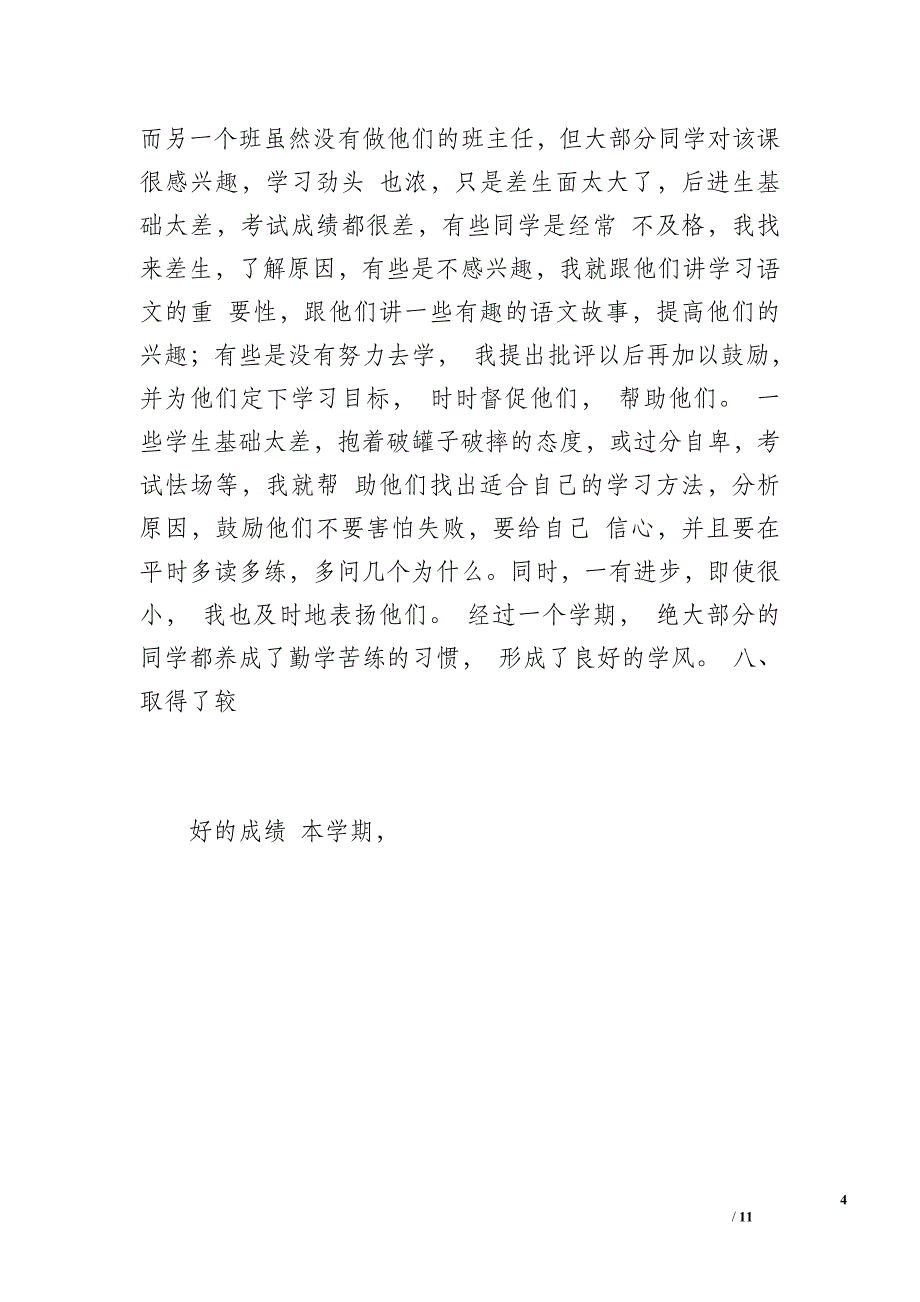 而另一个班虽然没有做他们的班主任，但大部分同学对该课
很感兴趣，学习劲头 也浓，只是差生面太大了，后进生基
础太差，考试成绩都很差，有些同学是经常 不及格，我找
来差生，了解原因，有些是不感兴趣，我就跟他们讲学习语
文的重 要性，跟他们讲一些有趣的语文故事，提高他们的
兴趣；有些是没有努力去学， 我提出批评以后再加以鼓励，
并为他们定下学习目标， 时时督促他们， 帮助他们。 一
些学生基础太差，抱着破罐子破摔的态度，或过分自卑，考
试怯场等，我就帮 助他们找出适合自己的学习方法，分析
原因，鼓励他们不要害怕失败，要给自己 信心，并且要在
平时多读多练，多问几个为什么。同时，一有进步，即使很
小， 我也及时地表扬他们。 经过一个学期， 绝大部分的
同学都养成了勤学苦练的习惯， 形成了良好的学风。 八、
取得了较
好的成绩 本学期，
4
/ 11